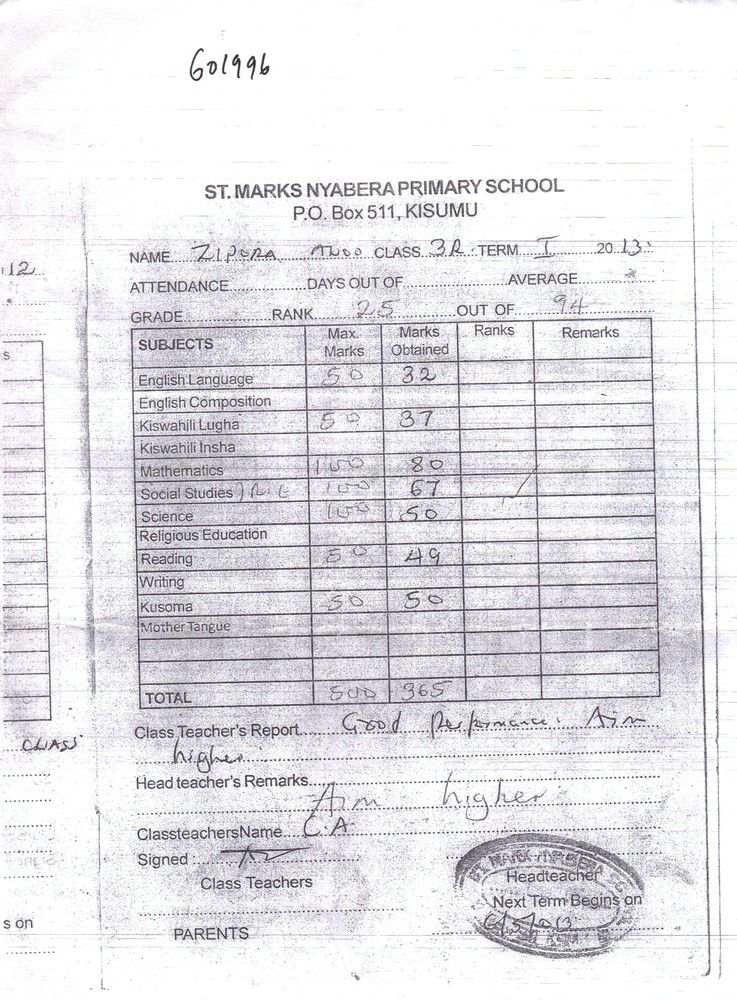 601996
ST. MARKS NYABERA PRIMARY SCHOOL
P.O. Box 511, KISUMU
NAME ZIPORA CLASS 3R TERM I 2013
12
ATTENDANCE DAYS OUT OF AVERAGE
GRADE RANK 25 OUT OF 94
SUBJECTS Max. Marks Marks Obtained Ranks Remarks
s
English Language 50 32
English Composition
Kiswahili Lugha 50 37
Kiswahili Insha
Mathematics 100 80
Social Studies 100 67
Science 100 50
Religious Education
Reading 50 49
Writing
Kusoma 50 50
Mother Tangue
TOTAL 500 365
Class Teacher's Report Good Performance. Aim
higher
CLASS
Head teacher's Remarks
Aim higher
ClassteachersName C.A
Signed
Class Teachers
Headteacher
Next Term Begins on
s on
PARENTS